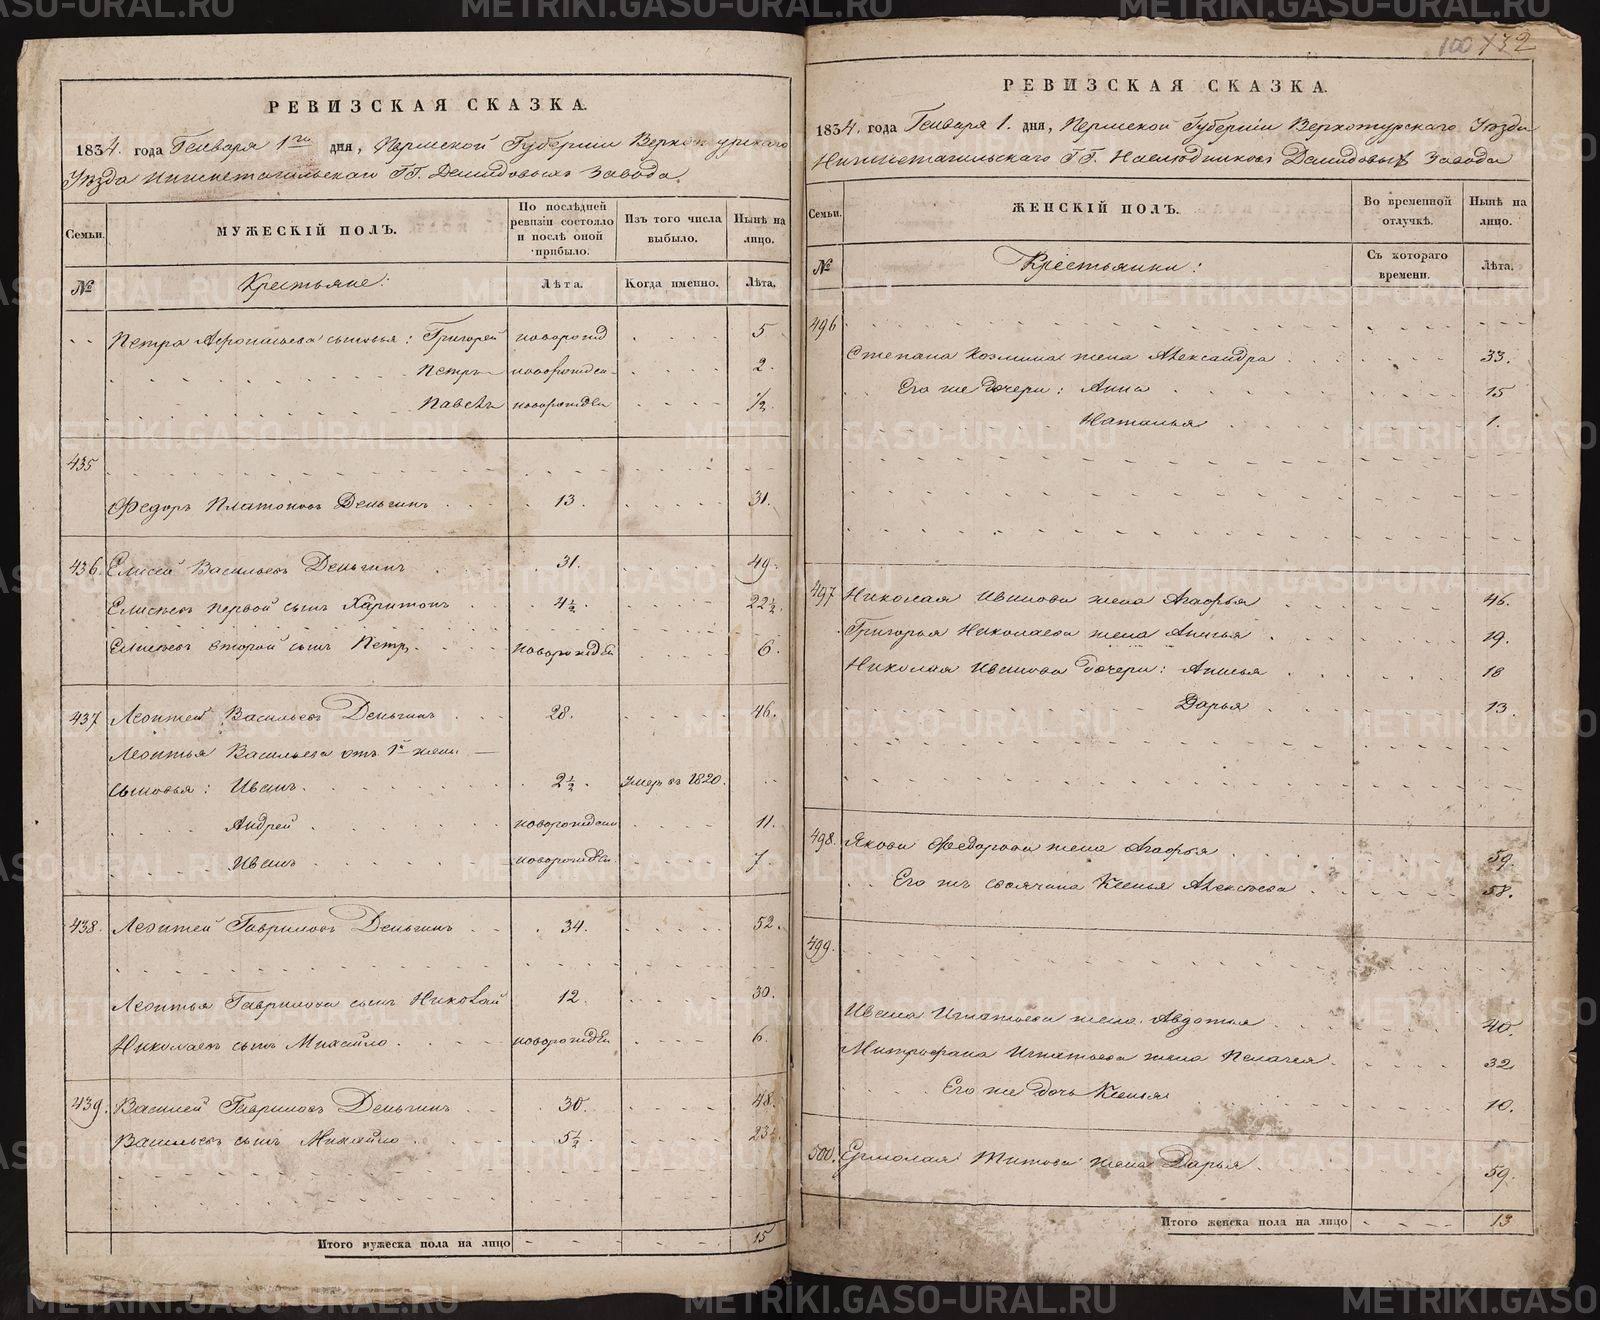 РЕВИЗСКАЯ СКАЗКА.
1834. года Генваря 1го дня, Пермской Губернии Верхотурскаго
Уѣзда Нижнетагильскаго ГГ. Демидовыхъ завода.
Семьи.
МУЖЕСКІЙ ПОЛЪ.
По послѣдней ревизіи состояло и послѣ оной прибыло.
Изъ того числа выбыло.
Нынѣ на лицо.
№
Крестьяне:
Лѣта.
Когда именно.
Лѣта.
Петра Афонасьева сыновья: Григорей новорожд 5
Петръ новорожден 2.
Павелъ новорожден 1/2
435
Федоръ Платоновъ Деньгинъ 13. 31.
436. Елисей Васильевъ Деньгинъ 31. 49.
Елисѣевъ первой сынъ Харитонъ 4 1/2 22 1/2
Елисѣевъ второй сынъ Петръ новорожден 6.
437 Леонтей Васильевъ Деньгинъ 28. 46.
Леонтья Васильева отъ 1й жены
сыновья: Иванъ 2 1/2 Умеръ въ 1820.
Андрей новорожден 11.
Иванъ новорожден. 7.
438. Леонтей Гавриловъ Деньгинъ 34. 52.
Леонтья Гаврилова сынъ Николай 12. 30.
Николаевъ сынъ Михайло новорожден 6.
439. Василей Гавриловъ Деньгинъ 30. 48.
Васильевъ сынъ Михайло 5 1/2. 23
Итого мужеска пола на лицо 15
100 132
РЕВИЗСКАЯ СКАЗКА.
1834. года Генваря 1. дня, Пермской Губерніи Верхотурскаго Уѣзда
Нижнетагильскаго ГГ. Наслѣдниковъ Демидовыхъ завода
Семьи.
ЖЕНСКІЙ ПОЛЪ.
Во временной отлучкѣ.
Нынѣ на лицо.
№
Крестьянки:
Съ котораго времени.
Лѣта.
496
Степана Козмина жена Александра 33.
Его же дочери: Анна 15
Наталья 1.
497 Николая Иванова жена Агафья 46.
Григорья Николаева жена Анисья 19.
Николая Иванова дочери: Анисья 18
Дарья 13.
498. Якова Федорова жена Агафья 59.
Его жъ своячина Ксенья Алексѣева 58.
499.
Ивана Игнатьева жена Авдотья 40.
Митрофана Игнатьева жена Пелагея 32
Его же дочь Ксенья 10.
500. Ермолая Титова жена Дарья 59.
Итого женска пола на лицо 13
METRIKI.GASO-URAL.RU